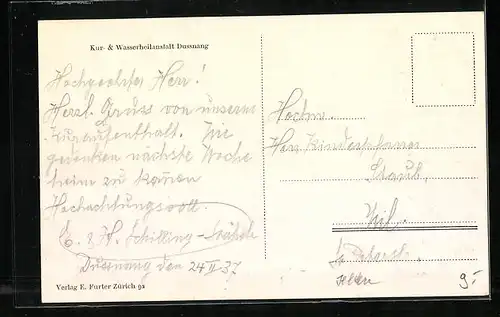 Kur- & Wasserheilanstalt Dussnang
Hochgeachter Herr!
Herzl. Gruss von unserm
Kuraufenthalt. Wir
gedenken nächste Woche
heim zu kommen
Hochachtungsvoll.
& H. Schilling-
Dussnang den 24 II 37
Verlag E. Furter Zürich 92
Hochw.
Herr Kinderpfarrer
Staub,
9.-